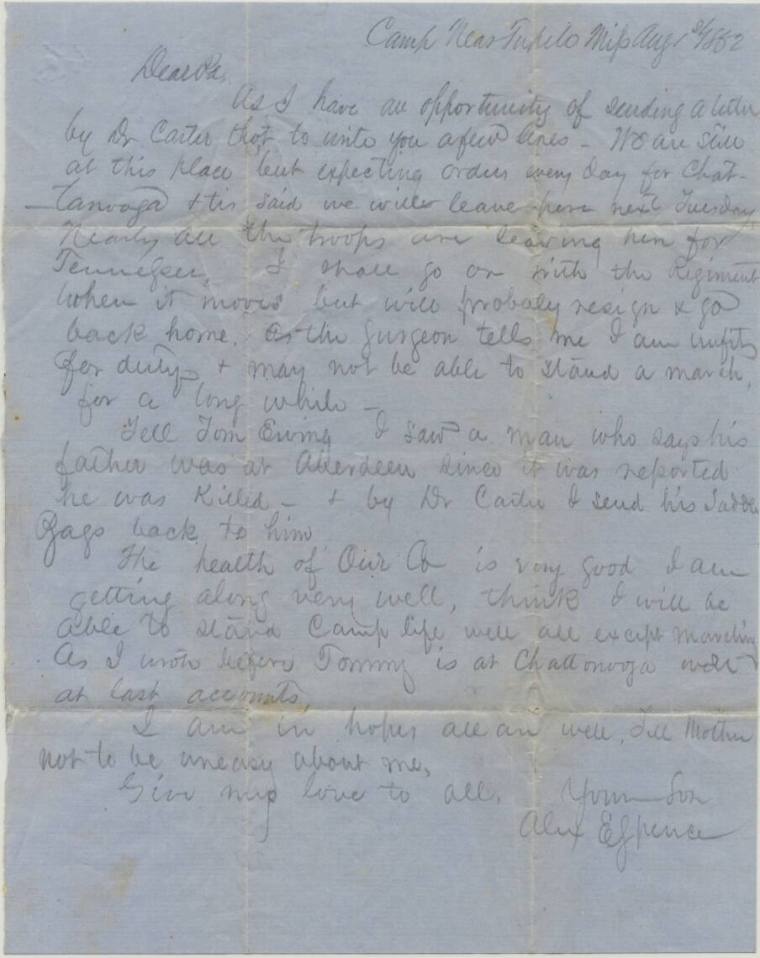 Camp Near Tupelo Miss Aug 1862
Dear Pa,
As I have an opportunity of sending a letter
by Dr Carter thot to write you a few lines - We are still
at this place but expecting orders every day for Chat-
tanooga & tis said we will leave here next Tuesday
Nearly all the troops are leaving here for
Tennessee, I shall go on with the Regiment
when it moves but will probaly resign & go
back home. As the Surgeon tells me I am unfit
for duty & may not be able to stand a march,
for a long while -
Tell Tom Ewing I saw a man who says his
father was at Aberdeen since it was reported
he was killed - & by Dr Carter I send his Saddle
Bags back to him
The health of Our Co is very good I am
getting along very well, think I will be
able to stand Camp life well all except marching
As I wrote before Tommy is at Chattonooga well
at last accounts,
I am in hopes all are well, Tell Mother
not to be uneasy about me,
Give my love to all. Your Son
Alex E Spence